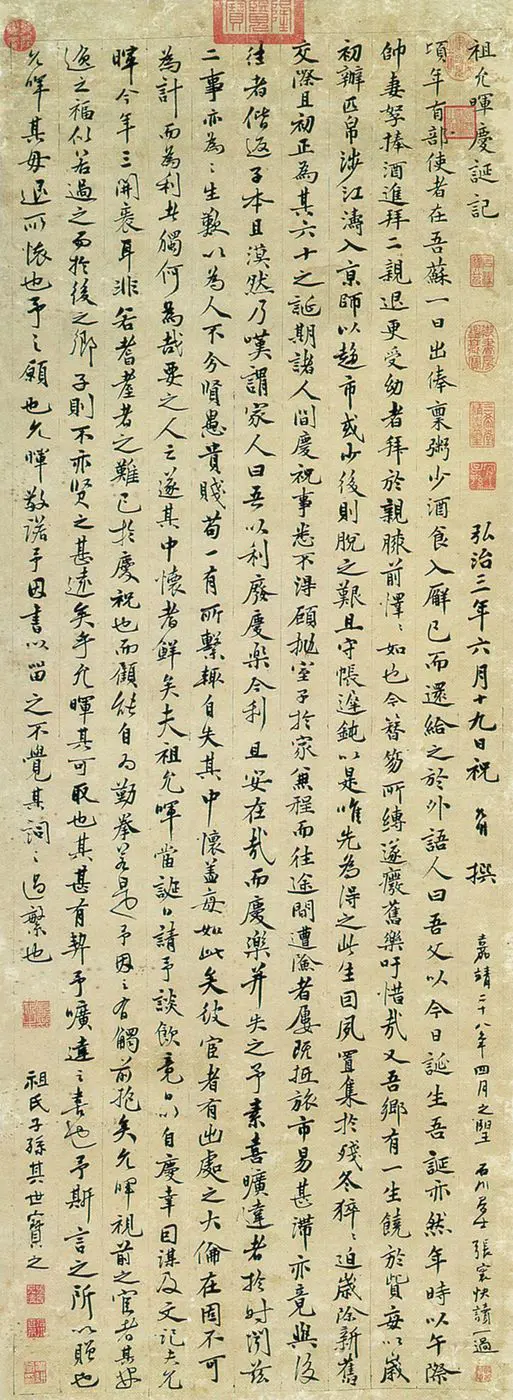 祖允暉慶誕記
弘治三年六月十九日祝 允明 撰
嘉靖二十八年四月之望 石川居士張寰快讀一過
頃年有部使者在吾蘇一日出俸稟粥少酒食入廨已而還給之於外語人曰吾父以今日誕生吾誕亦然年時以午際
帥妻孥捧酒進拜二親退更受幼者拜於親膝前懌〻如也今簪笏所縛遂廢舊樂吁惜哉又吾鄉有一生饒於貲每以歲
初辦匹帛涉江濤入京師以趍市或少後則脫之艱且守帳遲鈍以是唯先為得之此生回夙置集於殘冬猝〻迫歲除新舊
交際且初正為其六十之誕期諸人間慶祝事悉不得顧拋室子於家兼程而往途間遭險者屢既抵旅市易甚滯亦竟與後
往者偕返子本且漠然乃嘆謂家人曰吾以利廢慶樂今利且安在哉而慶樂并失之予素喜曠達者於时闵茲
二事亦為之生歎以為人不分賢愚貴賤苟一有所繫輙自失其中懷盖每如此矣彼宦者有出處之大倫在固不可
為計而為利者獨何為哉要之人之遂其中懷者鮮矣夫祖允暉當誕日請予談飲竟日以自慶幸回謀及文記夫允
暉今年三開袠耳非若耆耋者之難已於慶祝也而顧能自為勤拳若是予因之有觸前抱矣允暉視前之宦者其必
適之福似若過之而於後之鄉子則不亦賢之甚遠矣乎允暉其可取也其甚有契予曠達之喜也予斯言之所以贈也
允暉其毋退所懷也予之願也允暉敬諾予因書以留之不覺其詞之過繁也
祖氏子孫其世寶之